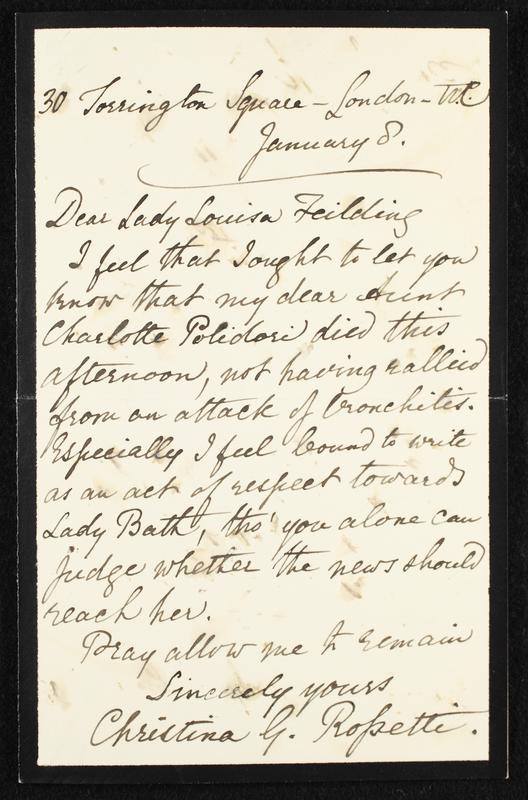 30 Torrington Square – London – W.C.
January 8.
Dear Lady Louisa Feilding
I feel that I ought to let you
know that my dear Aunt
Charlotte Polidori died this
afternoon, not having rallied
from an attack of bronchitis.
Especially I feel bound to write
as an act of respect towards
Lady Bath, tho' you alone can
judge whether the news should
reach her.
Pray allow me to remain
Sincerely yours
Christina G. Rossetti.